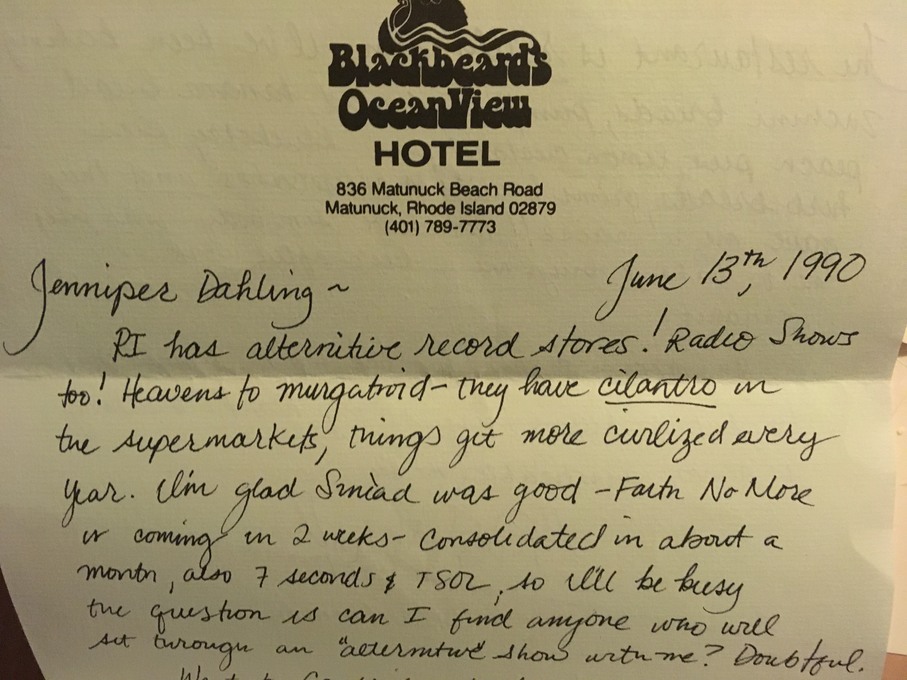 Blackbeard's
OceanView
HOTEL
836 Matunuck Beach Road
Matunuck, Rhode Island 02879
(401) 789-7773
June 13th, 1990
Jenniper Dahling ~
RI has alternitive record stores! Radio Shows
too! Heavens to murgatroid - they have cilantro in
the supermarkets, things get more civilized every
year. I'm glad Sinead was good - Faith No More
is coming in 2 weeks - Consolidated in about a
month, also 7 seconds & TSOL, so I'll be busy
the question is can I find anyone who will
sit through an "alternitive" show with me? Doubtful.